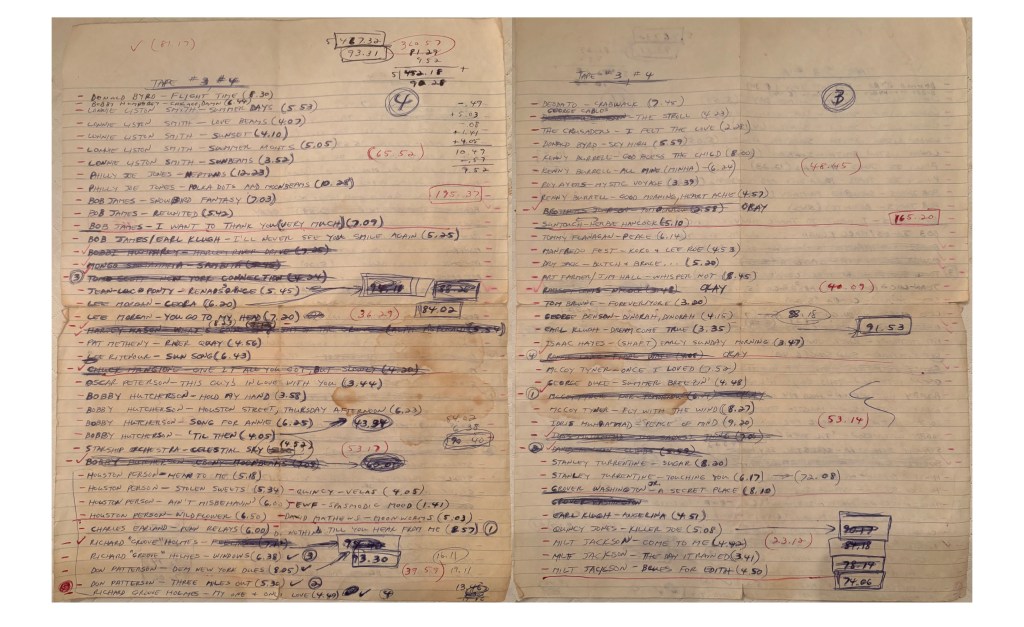 ✓ (81.17)
5 467.32
93.31
360.57
81.29
9.52
5 452.18 +
90.28
TAPE #3 #4
④
- DONALD BYRD - FLIGHT TIME (8.30)
- BOBBY HUMPHREY - (6.44)
- LONNIE LISTON SMITH - SUMMER DAYS (5.53)
- LONNIE LISTON SMITH - LOVE BEAMS (4.07)
- LONNIE LISTON SMITH - SUNSET (4.10)
- LONNIE LISTON SMITH - SUMMER NIGHTS (5.05)
- LONNIE LISTON SMITH - SUNBEAMS (3.52)
(65.52)
-.47
+5.03
-.08
+1.41
+4.05
10.49
-.57
9.52
- PHILLY JOE JONES - NEPTUNIS (12.23)
- PHILLY JOE JONES - POLKA DOTS AND MOONBEAMS (10.28)
195.37
- BOB JAMES - SNOWBIRD FANTASY (7.03)
- BOB JAMES - REUNITED (5.42)
- BOB JAMES - I WANT TO THANK YOU (VERY MUCH) (7.09)
- BOB JAMES/EARL KLUGH - I'LL NEVER SEE YOU SMILE AGAIN (5.25)
- BOBBI HUMPHREY - HARLEM RIVER DRIVE
- MONGO SANTAMARIA - SAMBITA
③ - TOM SCOTT - NEW YORK CONNECTION (4.24)
- JEAN-LUC PONTY - RENAISSANCE (5.45)
- LEE MORGAN - CEORA (6.20)
84.02
- LEE MORGAN - YOU GO TO MY HEAD (7.20)
(36.29)
(8.33)
- HARVEY MASON
- PAT METHENY - RIVER QUAY (4.56)
- LEE RITENOUR - SUN SONG (6.43)
- CHUCK MANGIONE - GIVE IT ALL YOU GOT, BUT SLOWLY (4.20)
- OSCAR PETERSON - THIS GUYS IN LOVE WITH YOU (3.44)
- BOBBY HUTCHERSON - HOLD MY HAND (3.58)
- BOBBY HUTCHERSON - HOUSTON STREET, THURSDAY AFTERNOON (6.23)
- BOBBY HUTCHERSON - SONG FOR ANNIE (6.25) → 43.34
84.02
6.38
90.40
- BOBBY HUTCHERSON - 'TIL THEN (4.05)
- STARSHIP ORCHESTRA - CELESTIAL SKY (4.52)
(53.17)
- BOBBY HUTCHERSON
- HOUSTON PERSON - MEAN TO ME (5.18)
- HOUSTON PERSON - STOLEN SWEETS (5.34) - QUINCY - VELAS (4.05)
- HOUSTON PERSON - AIN'T MISBEHAVIN' JEWF - SPASMODIC MOOD (1.41)
- HOUSTON PERSON - WILDFLOWER (6.50) - DAVID MATHEWS - MOONWORMS (5.03)
- CHARLES EARLAND - DAY RELAYS (6.00) DO NOTHING TILL YOU HEAR FROM ME (8.57) ①
- RICHARD "GROOVE" HOLMES
- RICHARD "GROOVE" HOLMES - WINDOWS (6.38) ✓ ③
73.30
(16.11)
- DON PATTERSON - DEM NEW YORK DUES (8.25) ✓
(37.57)
17.11
- DON PATTERSON - THREE MILES OUT (5.30) ✓ ②
13.46
- RICHARD GROOVE HOLMES - MY ONE & ONLY LOVE (4.40) ✓ 4
TAPE #3, #4
③
- DEODATO - SKYSCRAPER (7.45)
- GEORGE CABLES - THE STROLL (4.23)
- THE CRUSADERS - I FELT THE LOVE (2.28)
- DONALD BYRD - SKY HIGH (5.59)
- KENNY BURRELL - GOD BLESS THE CHILD (8.00)
- KENNY BURRELL - ALL MINE (MINHA) - (6.24)
(45.05)
- ROY AYERS - MYSTIC VOYAGE (3.39)
- KENNY BURRELL - GOOD MORNING, HEART ACHE (4.57)
- BROTHERS JOHNSON (2.58) OKAY
- SUNTOUCH - HERBIE HANCOCK (5.10)
165.20
- TOMMY FLANAGAN - PEACE (6.14)
- MANFREDO FEST - KOKO & LEE ROE (4.53)
- DRY JACK - BUTCH & BRUCE... (5.20)
- ART FARMER/JIM HALL - WHISPER NOT (8.45)
(4.48) OKAY
(40.09)
- TOM BROWNE - FOREVERMORE (3.20)
- GEORGE BENSON - DINORAH, DINORAH (4.15)
(88.18)
- EARL KLUGH - DREAM COME TRUE (3.35)
91.53
- ISAAC HAYES - (SHAFT) EARLY SUNDAY MORNING (3.47)
④ OKAY
- McCOY TYNER - ONCE I LOVED (7.52)
- GEORGE DUKE - SUMMER BREEZIN' (4.48)
①
- McCOY TYNER - FLY WITH THE WIND (8.27)
- IDRIS MUHAMMAD - PIECE OF MIND (9.20)
(53.14)
②
- STANLEY TURRENTINE - SUGAR (8.20)
- STANLEY TURRENTINE - TOUCHING YOU (6.17) → (72.08)
- GROVER WASHINGTON JR. - A SECRET PLACE (8.10)
- EARL KLUGH - ANGELINA (4.51)
- QUINCY JONES - KILLER JOE (5.08)
- MILT JACKSON - COME TO ME (4.42)
(23.12)
- MILT JACKSON - THE DAY IT RAINED (3.41)
78.14
- MILT JACKSON - BLUES FOR EDITH (4.50)
74.06